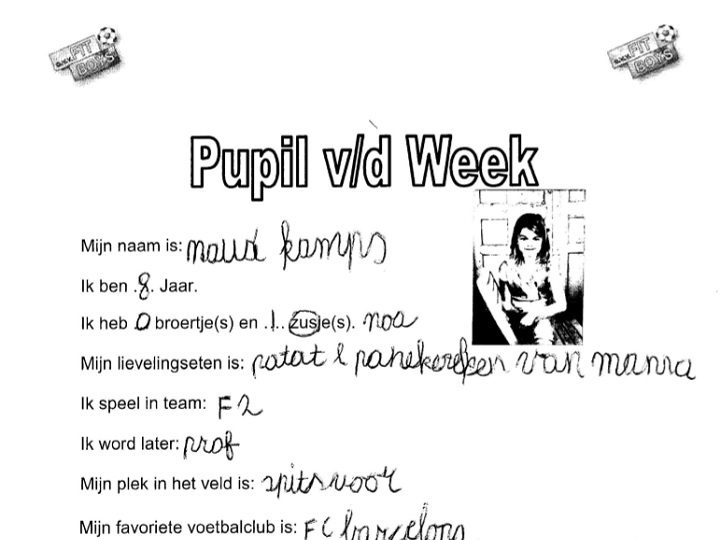 FIT BOYS
FIT BOYS
Pupil v/d Week
Mijn naam is: maud kamps
Ik ben .8. Jaar.
Ik heb 0 broertje(s) en .1.. zusje(s). noa
Mijn lievelingseten is: patat & van mama
Ik speel in team: F2
Ik word later: prof
Mijn plek in het veld is: spitsvoor
Mijn favoriete voetbalclub is: FC barcelona